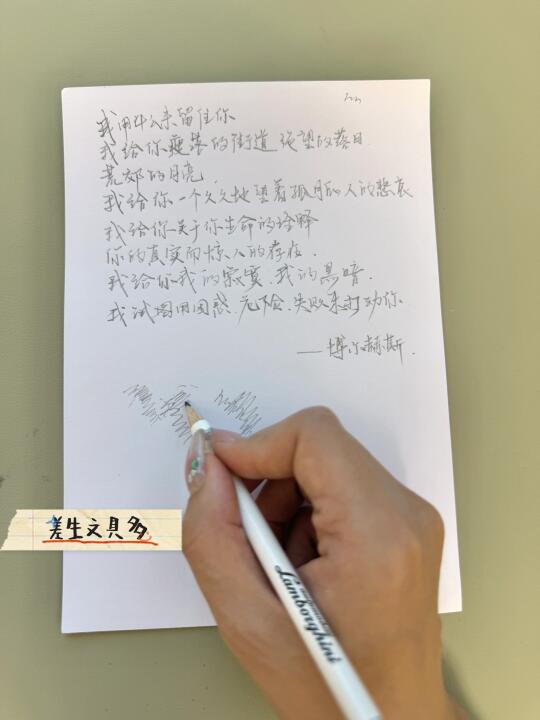 我用什么来留住你
我给你瘦落的街道 绝望的落日
荒郊的月亮.
我给你一个久久地望着孤月的人的悲哀
我给你关于你生命的诠释
你的真实而惊人的存在.
我给你我的寂寞.我的黑暗.
我试图用困惑.危险.失败来打动你.
——博尔赫斯.
差生文具多
Lamborghini